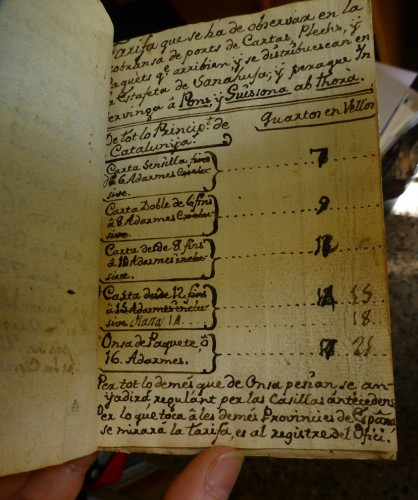 Tarifa que se ha de observar en la
cobransa de ports de Cartas, Plechs, ÿ
paquets qe. arribien, ÿ se distribuescan en
Estafeta de Sanahuja; ÿ peraque
â Pons, ÿ Guissona ab thora.
de tot lo Principt. de
Catalunÿa.
quartos en Vellon
Carta Sensilla fins
â 6 Adarmes
sive.
7
Carta Doble de 6 fins
â 8 Adarmes
sive.
9
Carta desde 8 fins
â Adarmes inclu-
sive.
Carta desde 12 fins
â 15 Adarmes inclu-
sive
15
18
Onsa de Paquete, ô
16. Adarmes.
21
Per tot lo demés que de Onsa pesian, se an-
ÿadirá, regulant per las Casillas antecedens
Per lo que toca â les demés Provincies de España
se mirará la tarifa, es al registre del Ofici.